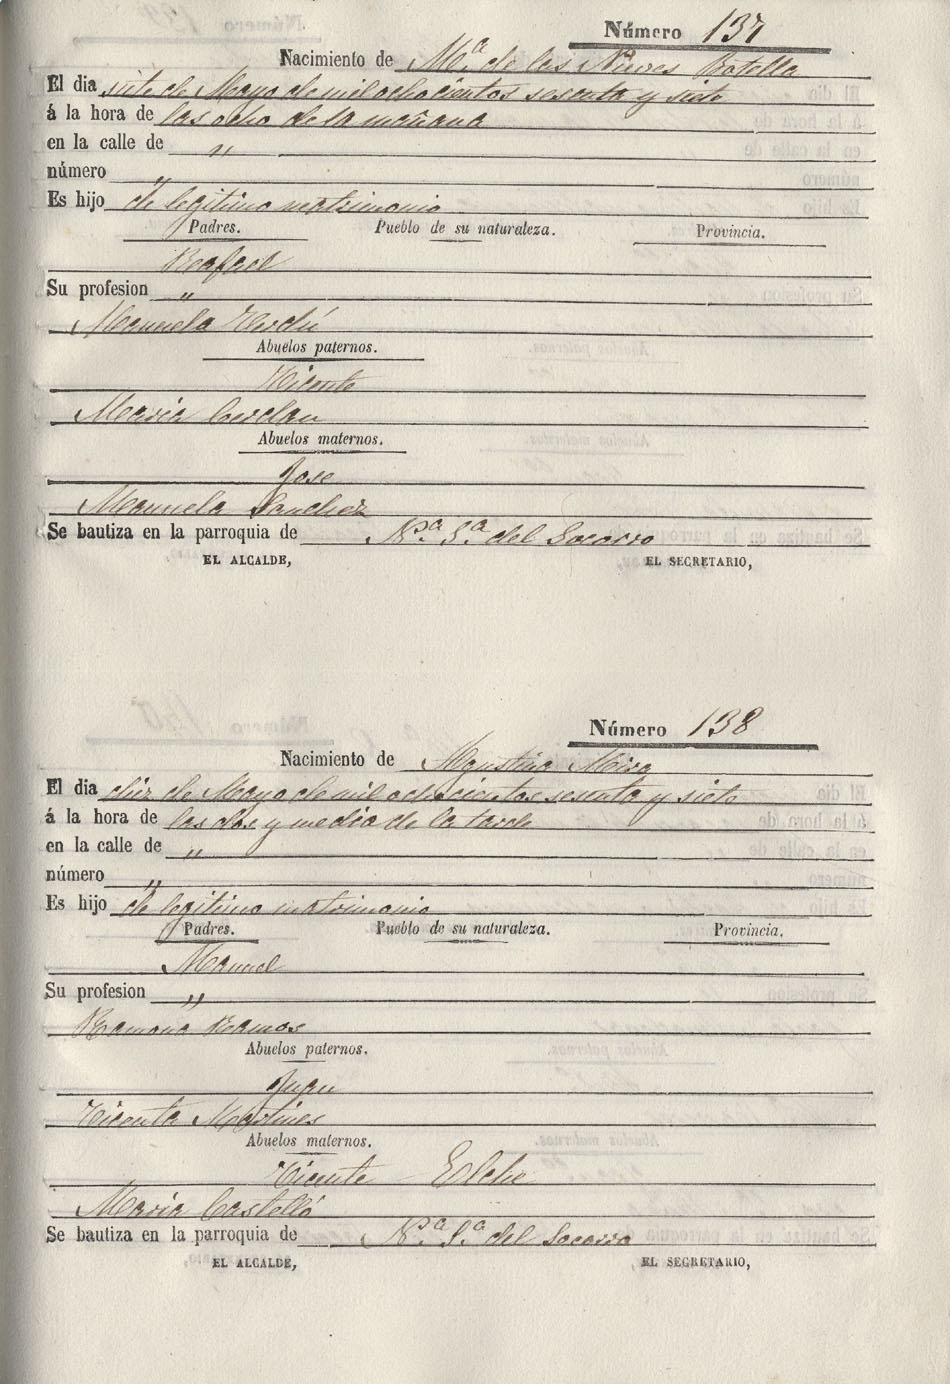 Número 137
Nacimiento de Mª. de las Nieves Botella
El dia siete de Mayo de mil ochocientos sesenta y siete
á la hora de las ocho de la mañana
en la calle de "
número "
Es hijo de legitimo matrimonio
Padres. Pueblo de su naturaleza. Provincia.
Rafael
Su profesion "
Manuela Verdú
Abuelos paternos.
Vicente
Maria Cerdan
Abuelos maternos.
Jose
Manuela Sanchez
Se bautiza en la parroquia de Nª. Sª. del Socorro
EL ALCALDE, EL SECRETARIO,
Número 138
Nacimiento de Agustina Mira
El dia diez de Mayo de mil ochocientos sesenta y siete
á la hora de las dos y media de la tarde
en la calle de "
número "
Es hijo de legitimo matrimonio
Padres. Pueblo de su naturaleza. Provincia.
Manuel
Su profesion "
Ramona Ramos
Abuelos paternos.
Juan
Vicenta Martines
Abuelos maternos.
Vicente Elche
Maria Castelló
Se bautiza en la parroquia de Nª. Sª. del Socorro
EL ALCALDE, EL SECRETARIO,